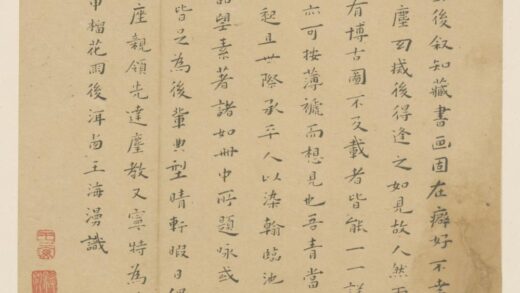 後叙知藏書画固在癖好不
塵刧撥後得逢之如見故人然
有博古圖不及載者皆能一一詳
亦可按薄號而想見也吾青當
起且世際承平人以染翰臨池
望素著諸如冊中所題咏或
皆足為後輩典型晴軒暇日
座親領先達塵教又寧特為
申榴花雨後洱南王海漫識